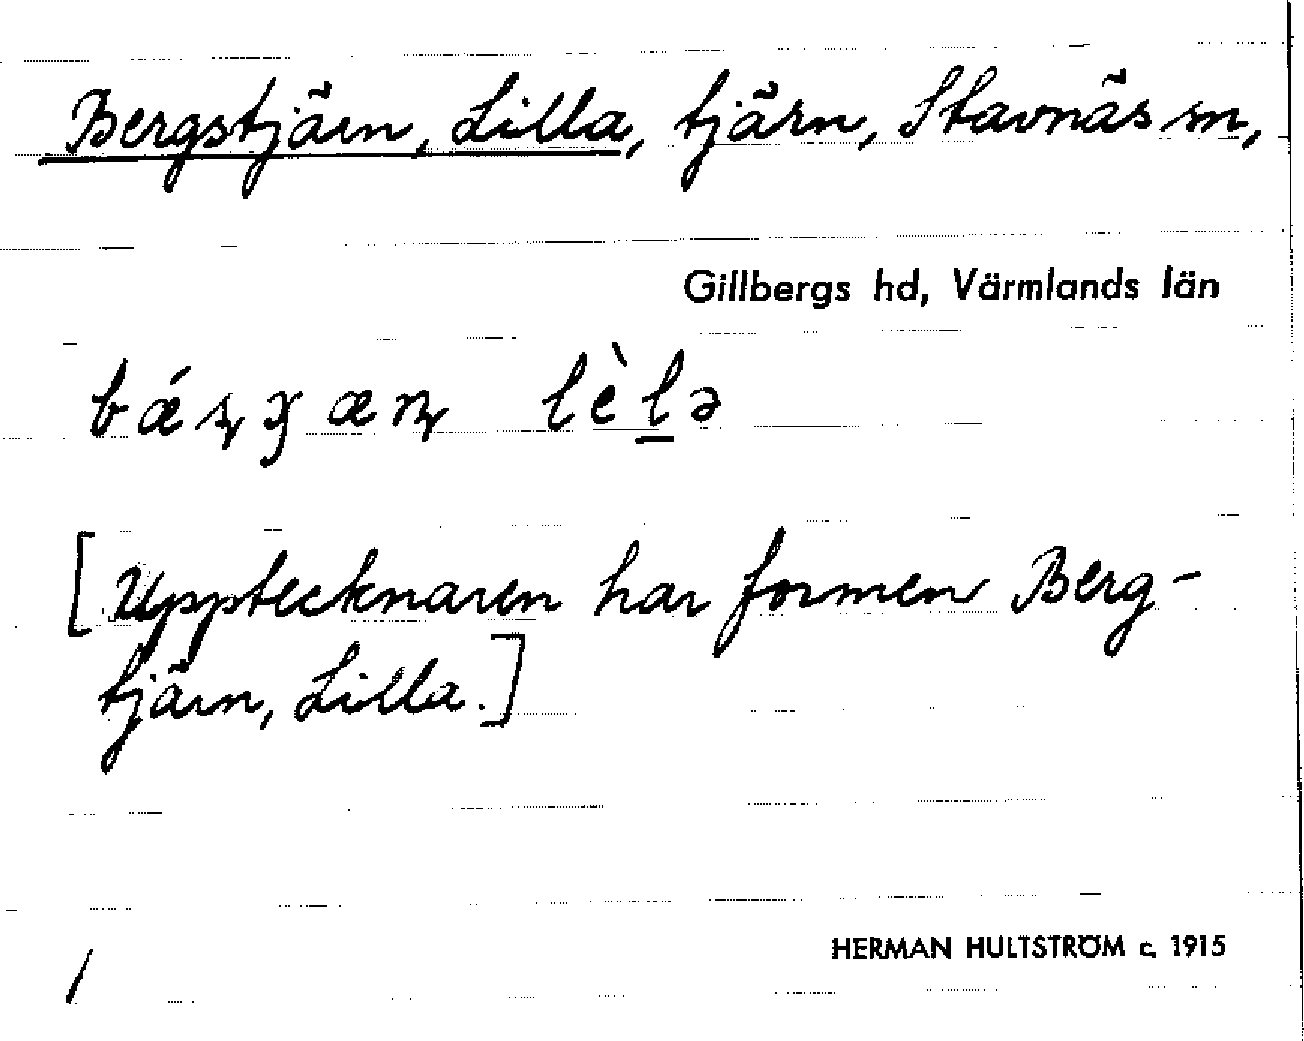 Bergstjärn, Lilla, tjärn, Stavnäs sn,
Gillbergs hd, Värmlands län
lèlə
[Upptecknaren har formen Berg-
tjärn, Lilla.]
HERMAN HULTSTRÖM c. 1915
/